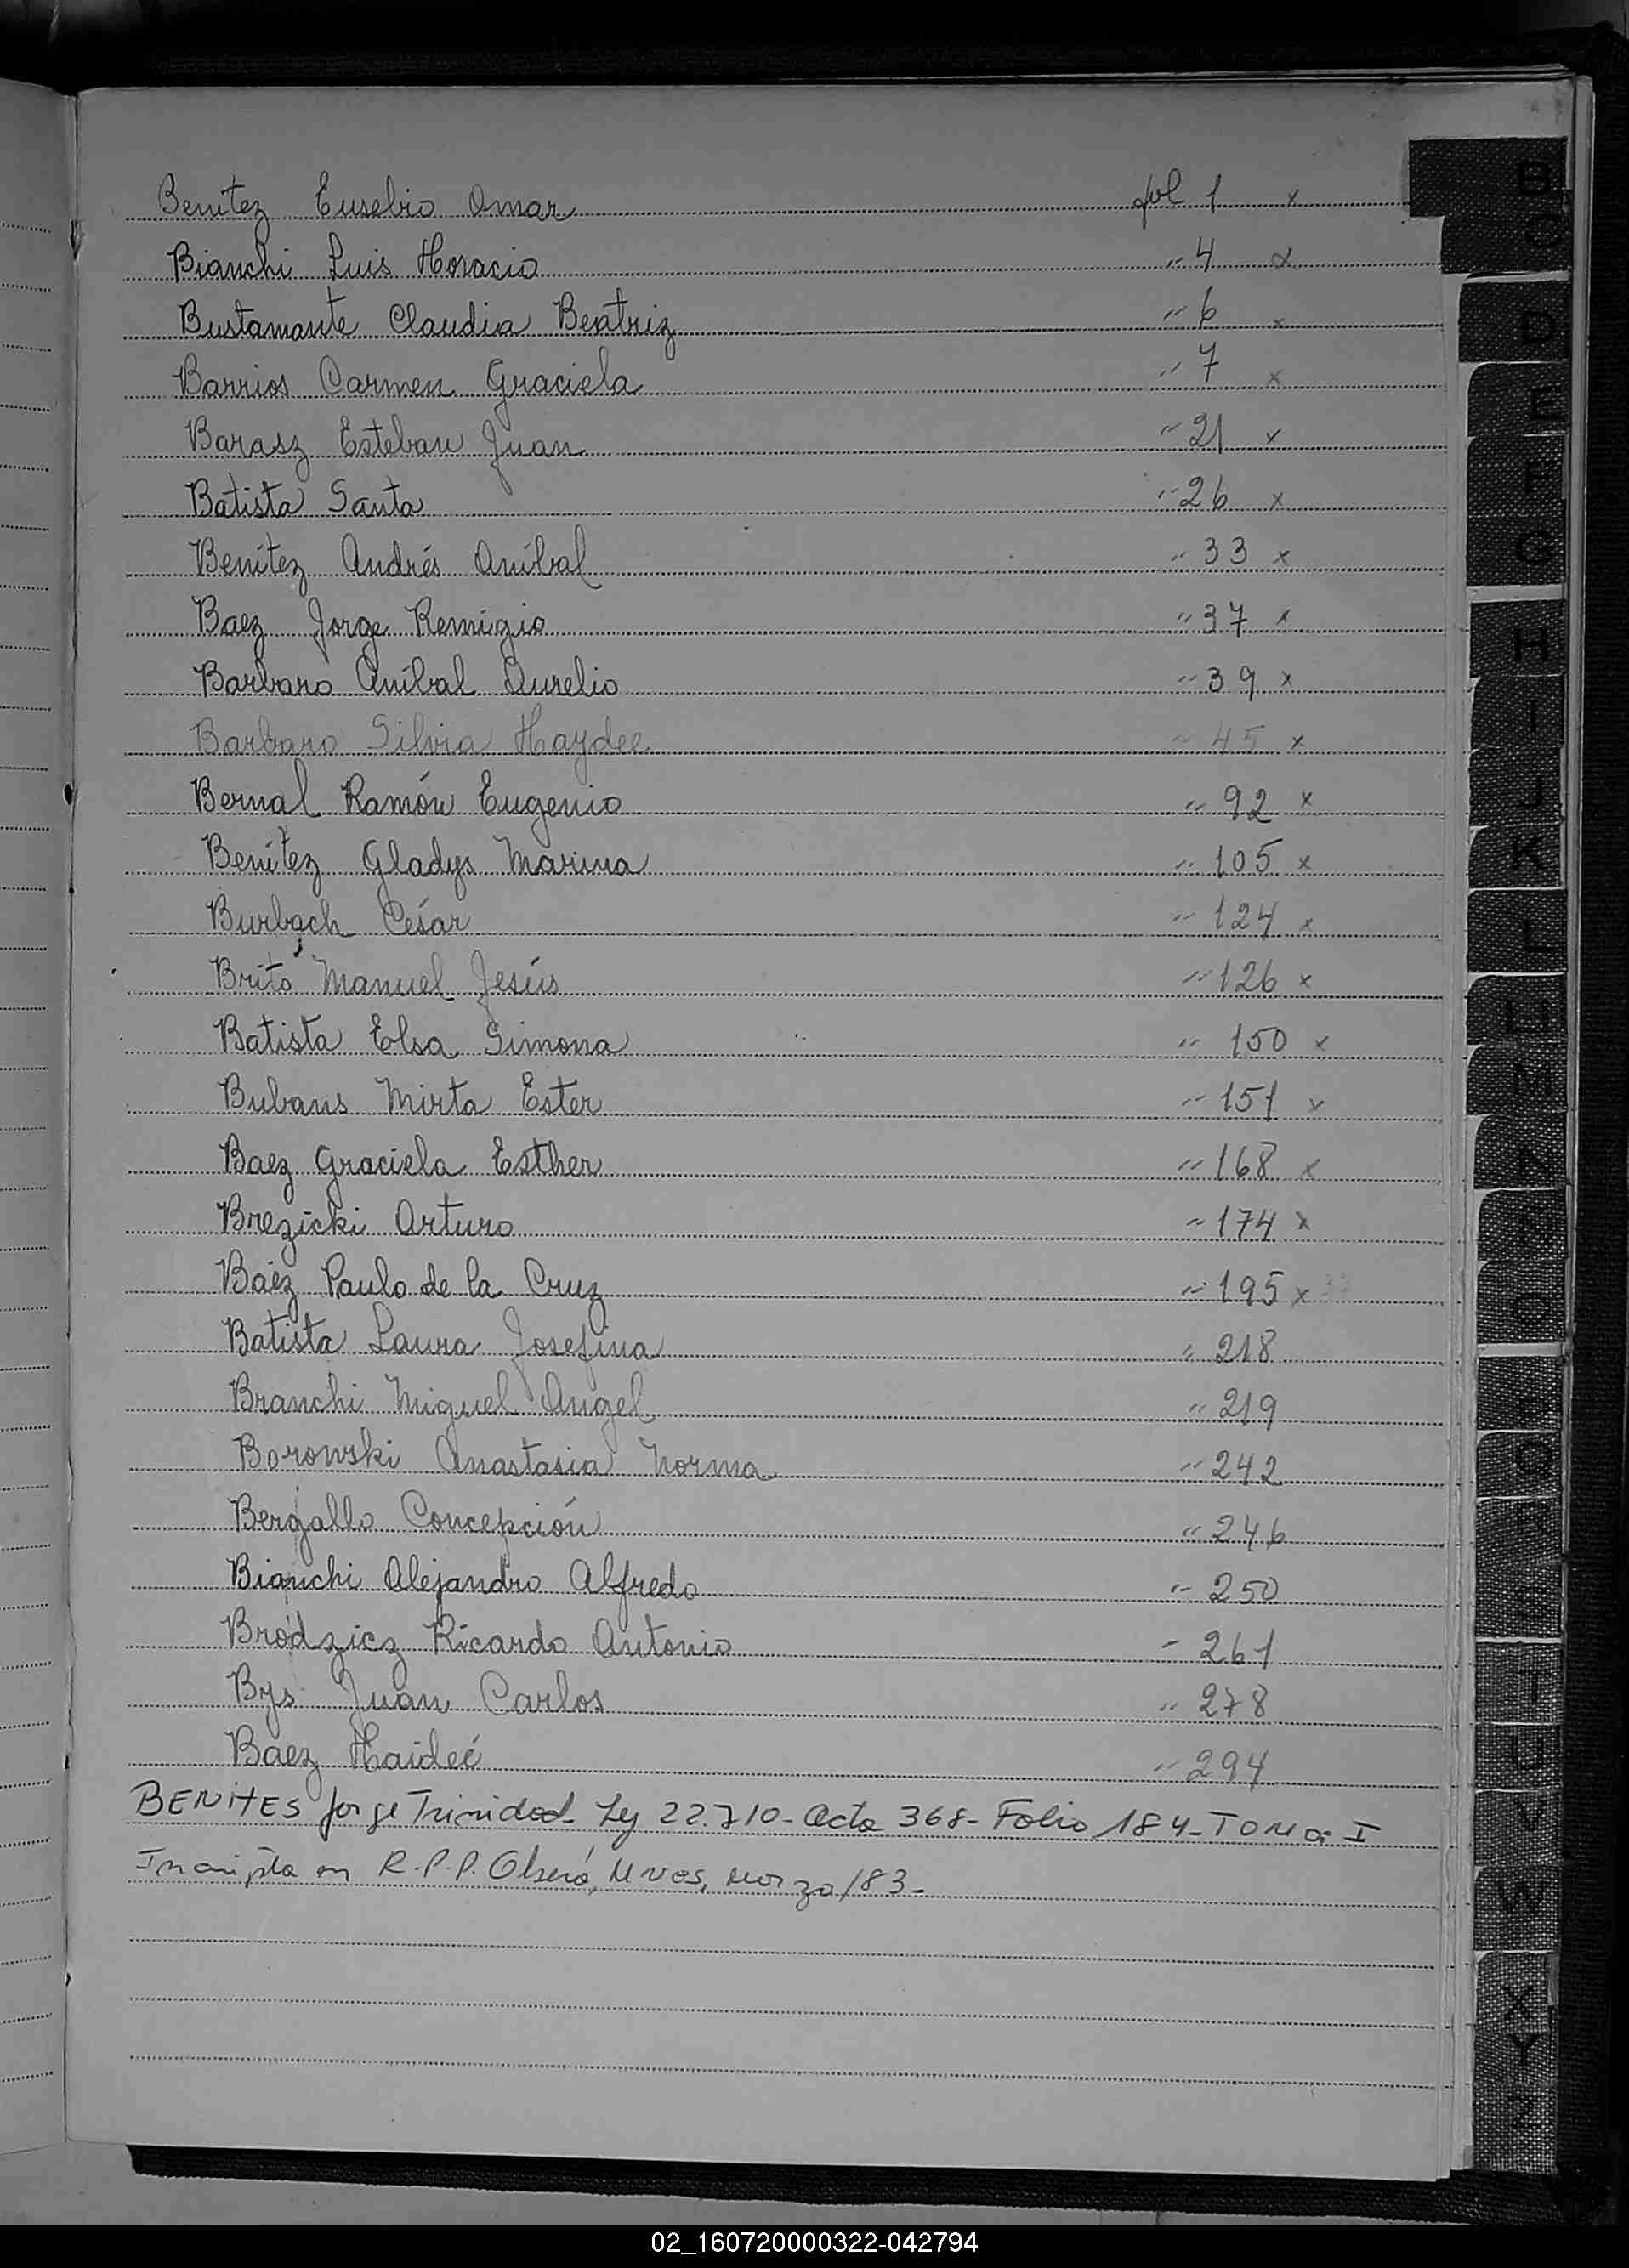 Benitez Eusebio Omar fol 1 x
Bianchi Luis Horacio " 4 x
Bustamante Claudia Beatriz " 6 x
Barrios Carmen Graciela " 7 x
Barasz Esteban Juan " 21 x
Batista Santa " 26 x
Benítez Andrés Aníbal " 33 x
Baez Jorge Remigio " 37 x
Barbaro Aníbal Aurelio " 39 x
Barbaro Silvia Haydee " 45 x
Bernal Ramón Eugenio " 92 x
Benítez Gladys Marina " 105 x
Burbach César " 124 x
Brito Manuel Jesús " 126 x
Batista Elsa Simona " 150 x
Bubans Mirta Ester " 151 x
Baez Graciela Esther " 168 x
Brezicki Arturo " 174 x
Baéz Paulo de la Cruz " 195 x
Batista Laura Josefina " 218
Branchi Miguel Angel " 219
Borowski Anastasia Norma " 242
Bergallo Concepción " 246
Bianchi Alejandro Alfredo " 250
Brodzicz Ricardo Antonio " 261
Bys Juan Carlos " 278
Baez Haideé " 294
BENITES Jorge Trinidad - Ley 22.710 - Acta 368 - Folio 184 - TOMO: I
Inscripta en R.P.P. Oberá, Mnes, Marzo/83 -
B
C
D
E
F
G
H
I
J
K
L
LL
M
N
Ñ
O
P
Q
R
S
T
U
V
W
X
Y
Z
02_160720000322-042794